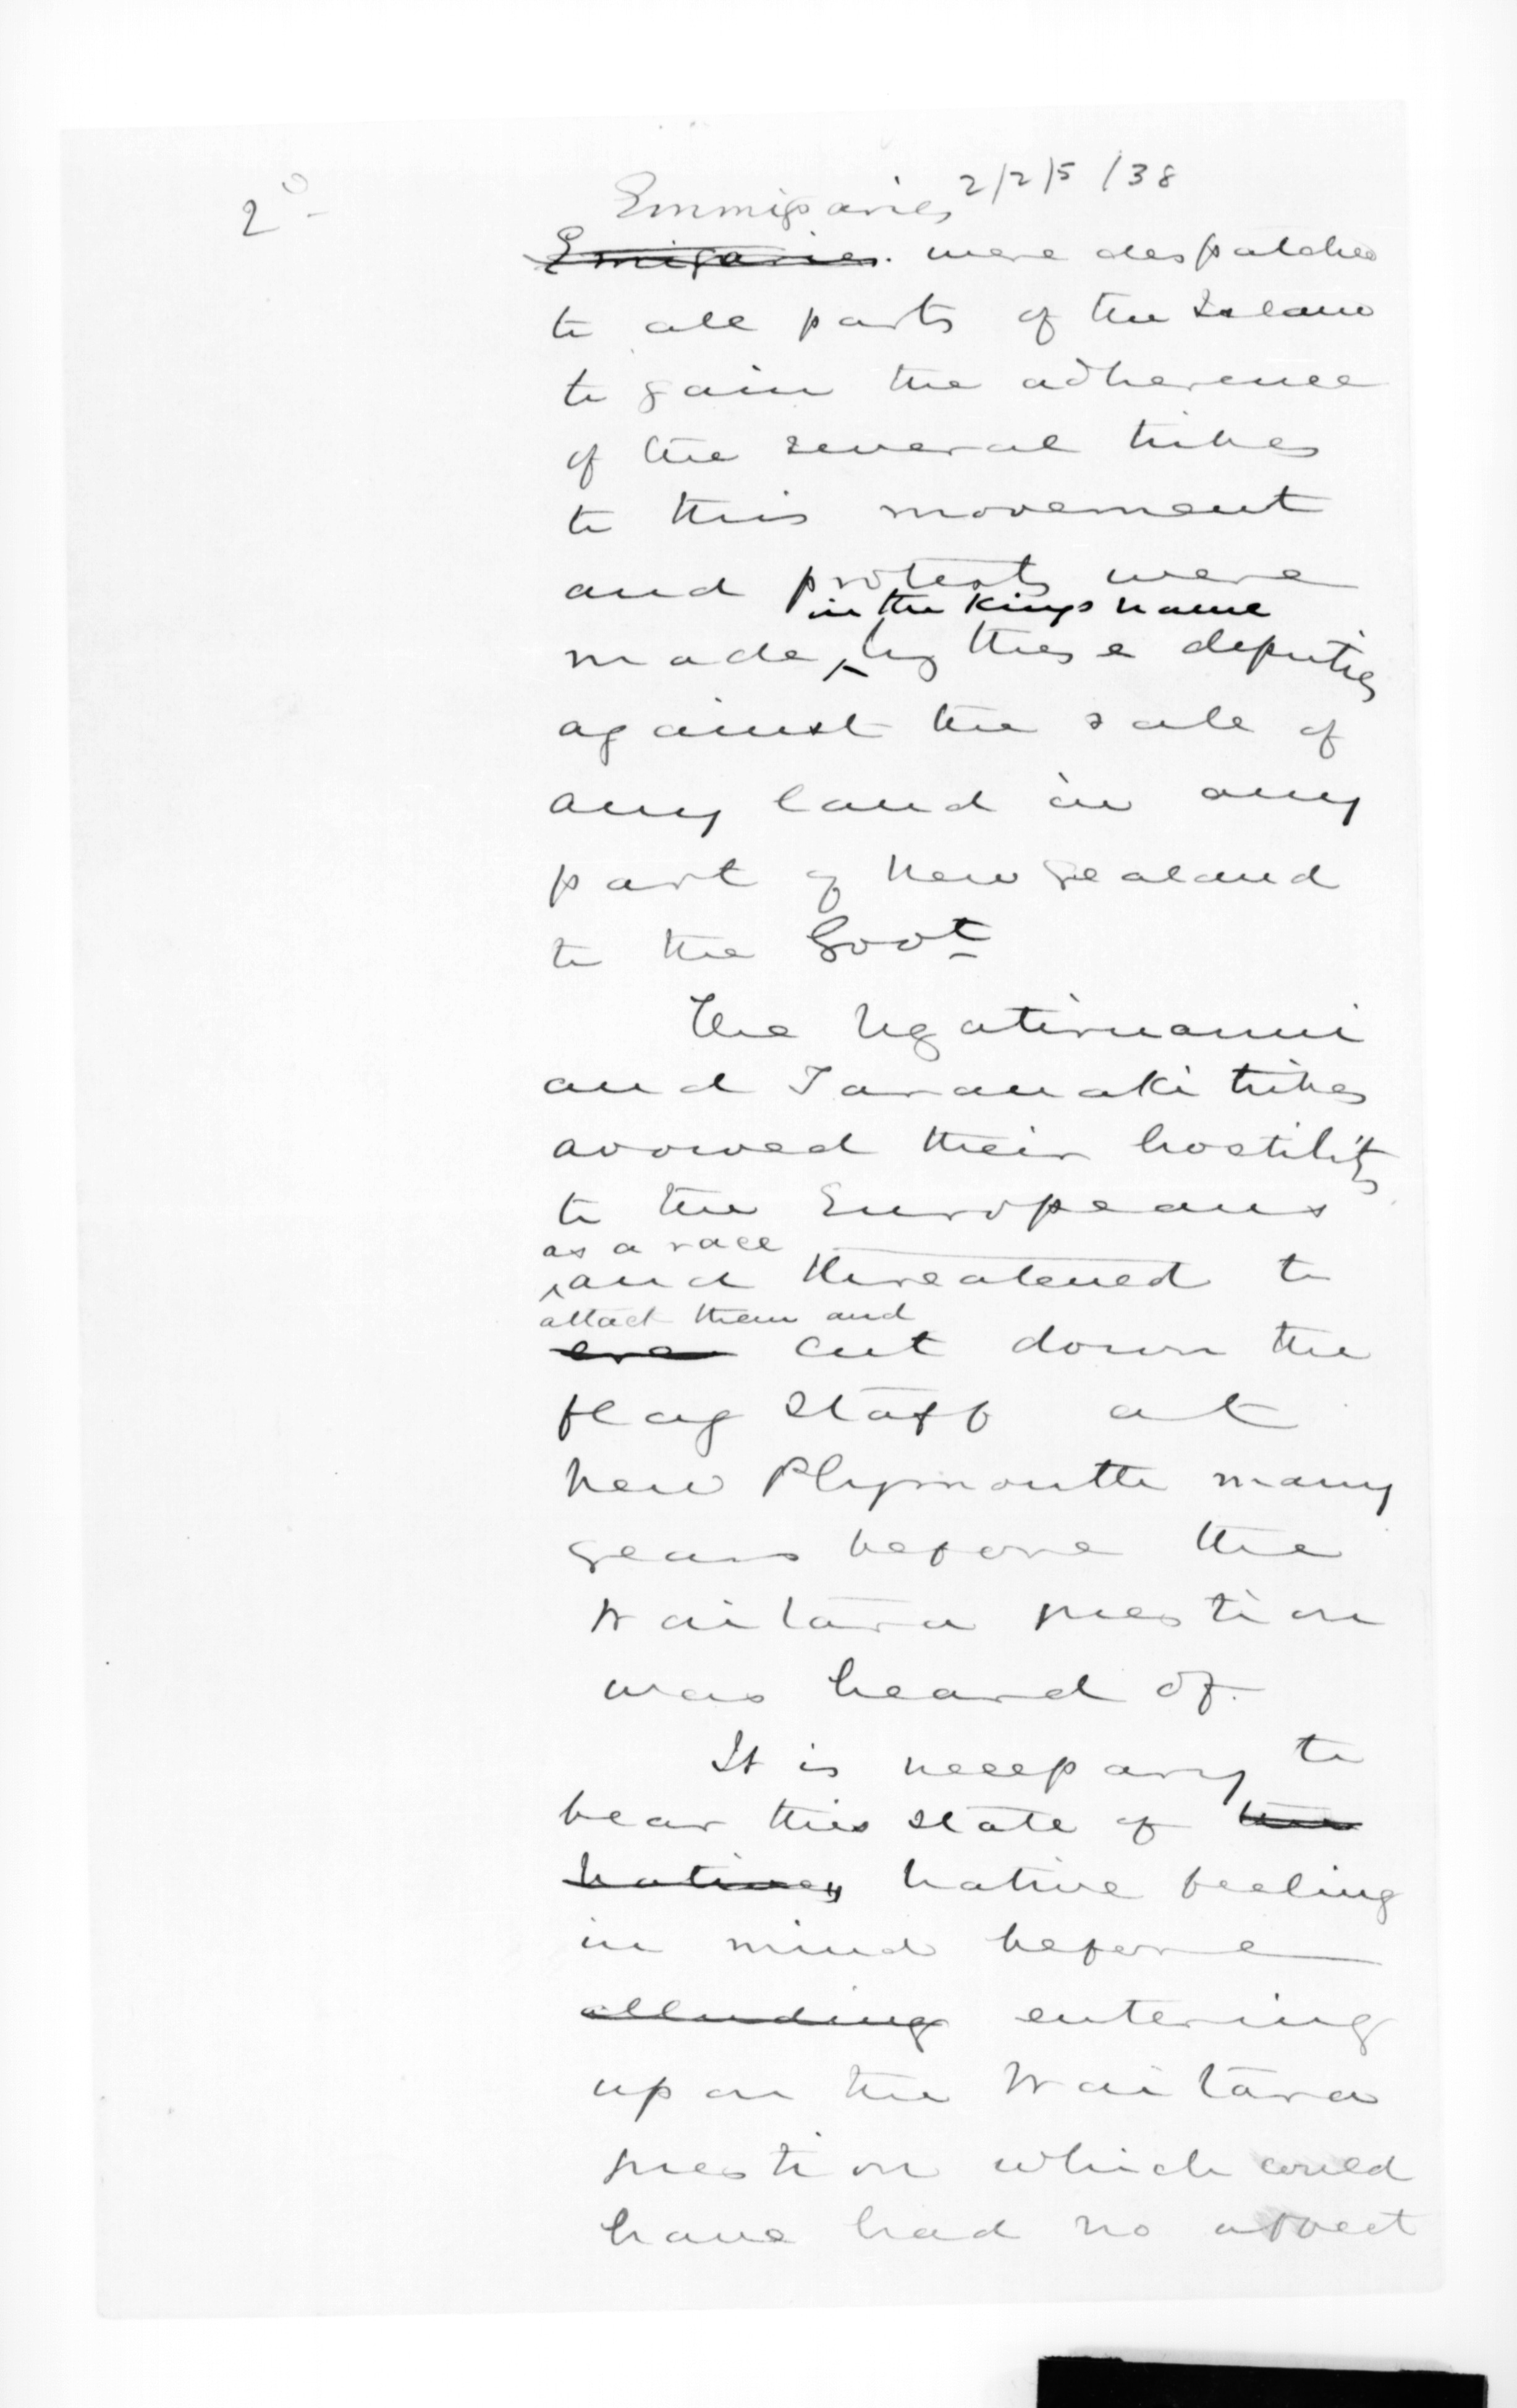 2/2/5/38
2º
Emmisaries
Emisaries. were despatched
to all parts of the Island
to gain the adherence
of the several tribes
to this movement
and protests were
in the Kings name
made by these deputies
against the sale of
any land in any
part of New Zealand
to the Govt
The Ngatiruanui
and Taranaki tribes
avowed their hostility
to the Europeans
as a race
and threatened to
attact them and
cut down the
flag staff at
New Plymouth many
years before the
Waitara question
was heard of.
It is necessary to
bear this state of the
natives native feeling
in mind before
alluding entering
upon the Waitara
question which could
have had no affect